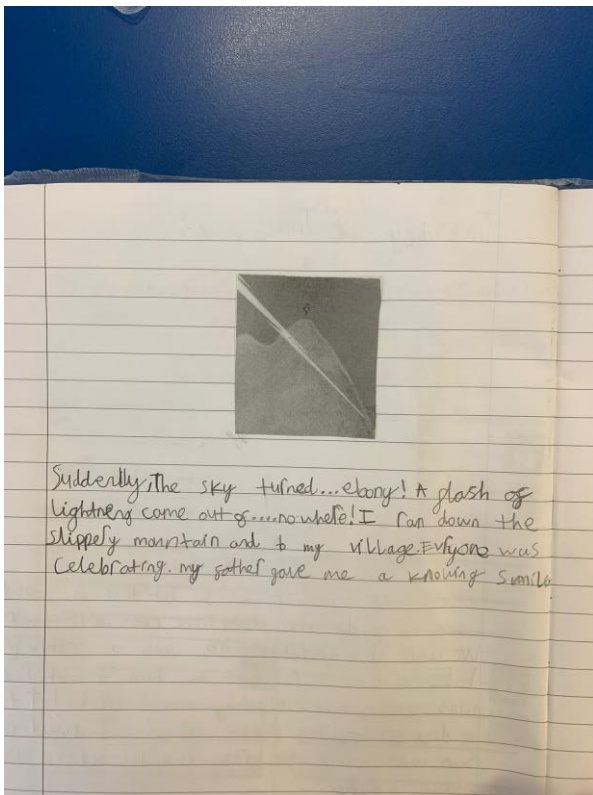 Suddenlly, The sky turned...ebony! A flash of
lightneng come out of....nowhere! I ran down the
slippery mountain and to my village. Evryone was
Celebrating. my father gave me a knowing smile